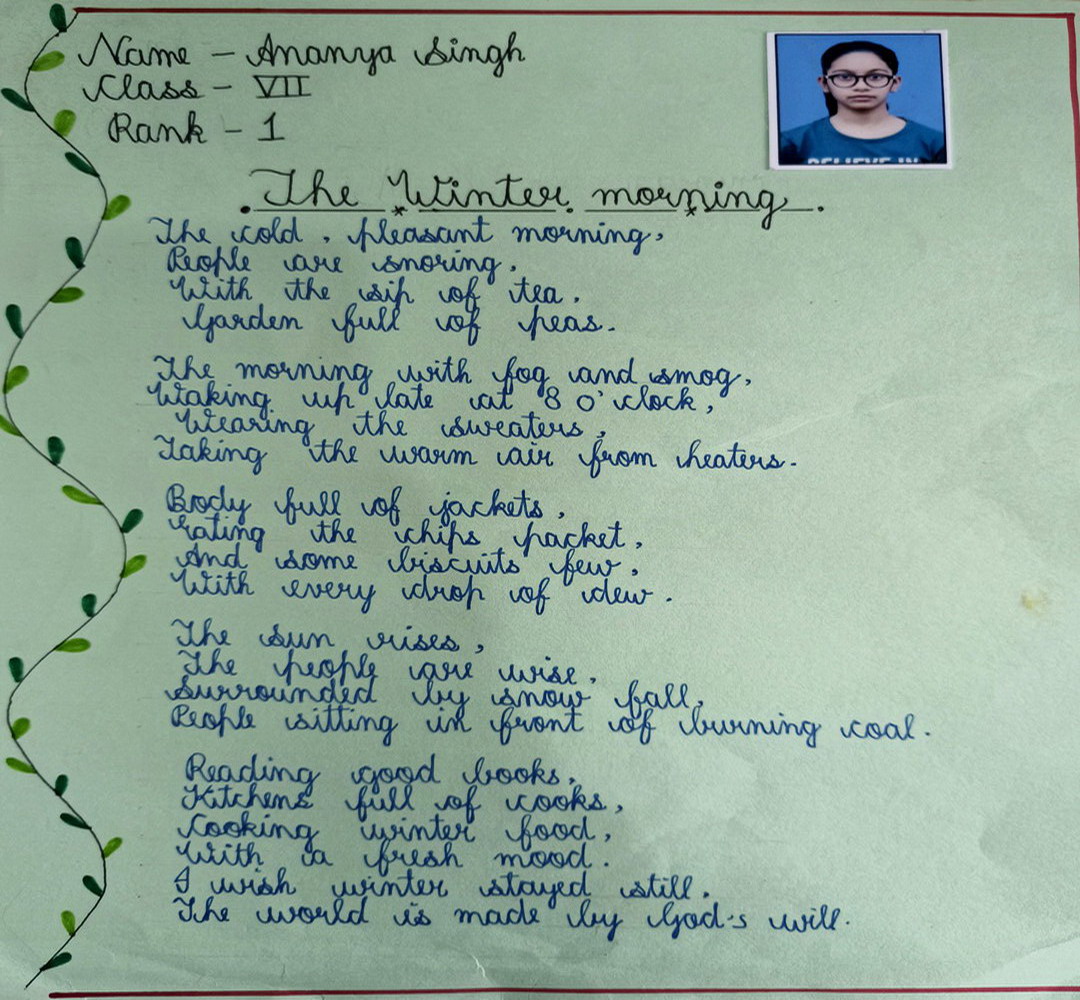 Name - Ananya Singh
Class - VII
Rank - 1
BELIEVE IN
The Winter morning.
The cold, pleasant morning,
People are snoring,
With the sip of tea,
Garden full of peas.
The morning with fog and smog,
Waking up late at 8 o'clock,
Wearing the sweaters,
Taking the warm air from heaters.
Body full of jackets,
Eating the chips packet,
And some biscuits few,
With every drop of dew.
The sun rises,
The people are wise,
Surrounded by snow fall,
People sitting in front of burning coal.
Reading good books,
Kitchens full of cooks,
Cooking winter food,
With a fresh mood.
I wish winter stayed still,
The world is made by God's will.